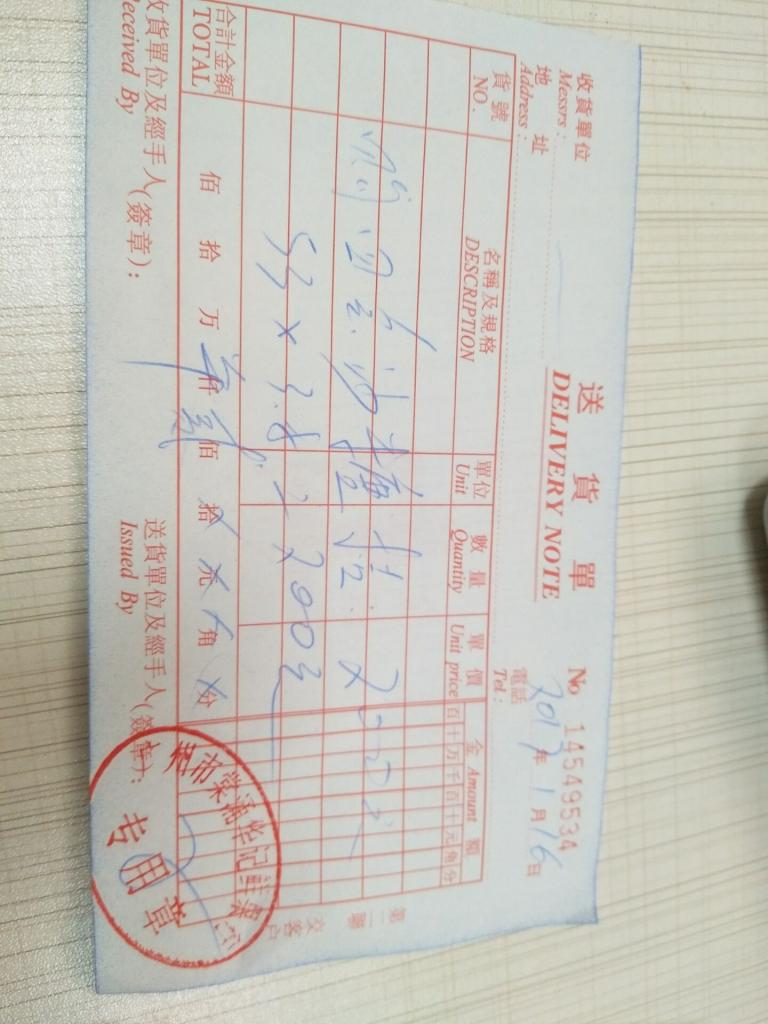 送 貨 單
DELIVERY NOTE
No 14549534
收貨單位
Messrs:
電話
Tel:
地 址
Address:
2017年1月16日
貨號
NO.
名稱及規格
DESCRIPTION
單位
Unit
數量
Quantity
單價
Unit price
金 Amount 額
百十万千百十元角分
53 × 3.8 = 200元
合計金額
TOTAL
佰 拾 万 仟 佰 拾 元 角 分
收貨單位及經手人(簽章):
Received By
送貨單位及經手人(簽章):
Issued By
第二聯 交客戶
州市棠涌华记鲜果
专用章